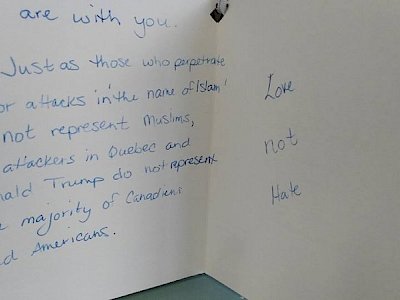 are with you.
Just as those who perpetrate
or attacks in 'the name of Islam'
not represent Muslims,
attackers in Quebec and
nald Trump do not represent
majority of Canadians
Americans.
Love
not
Hate